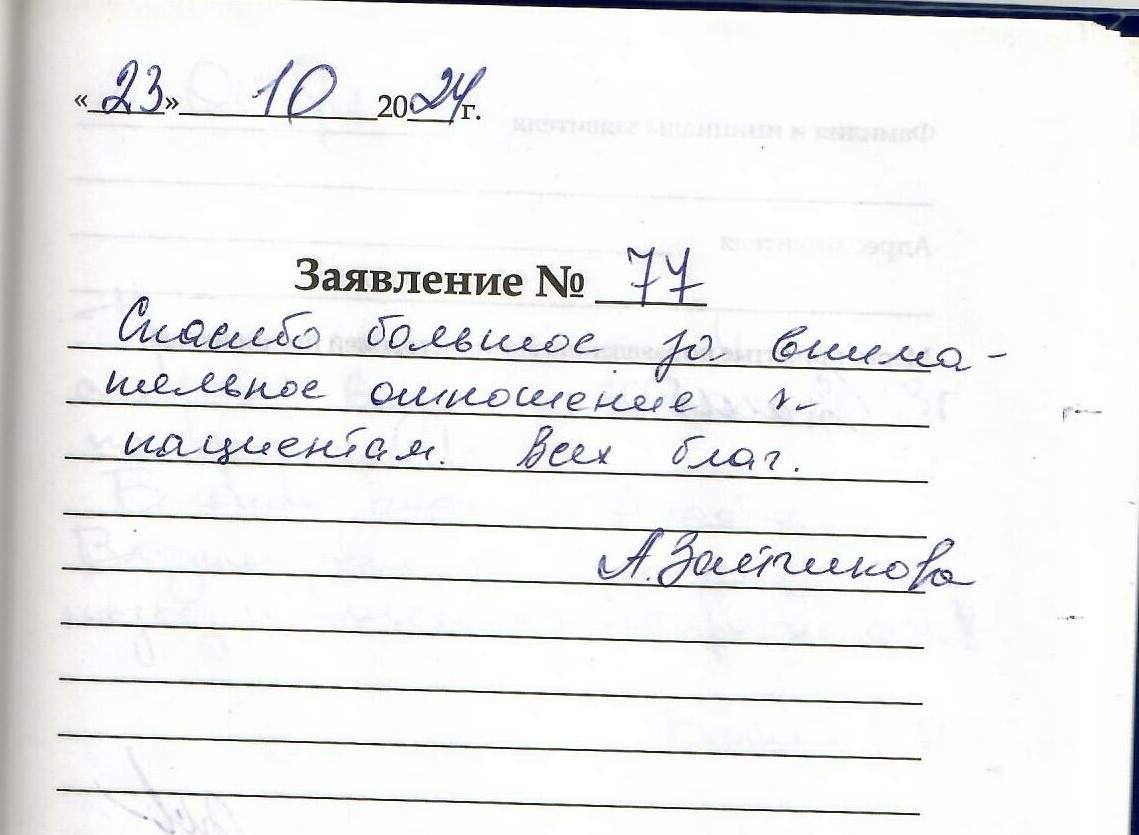 «23» 10 2024 г.
Заявление № 77
Спасибо большое за внима-
тельное отношение к
пациентам. Всех благ.
А. Зайчикова